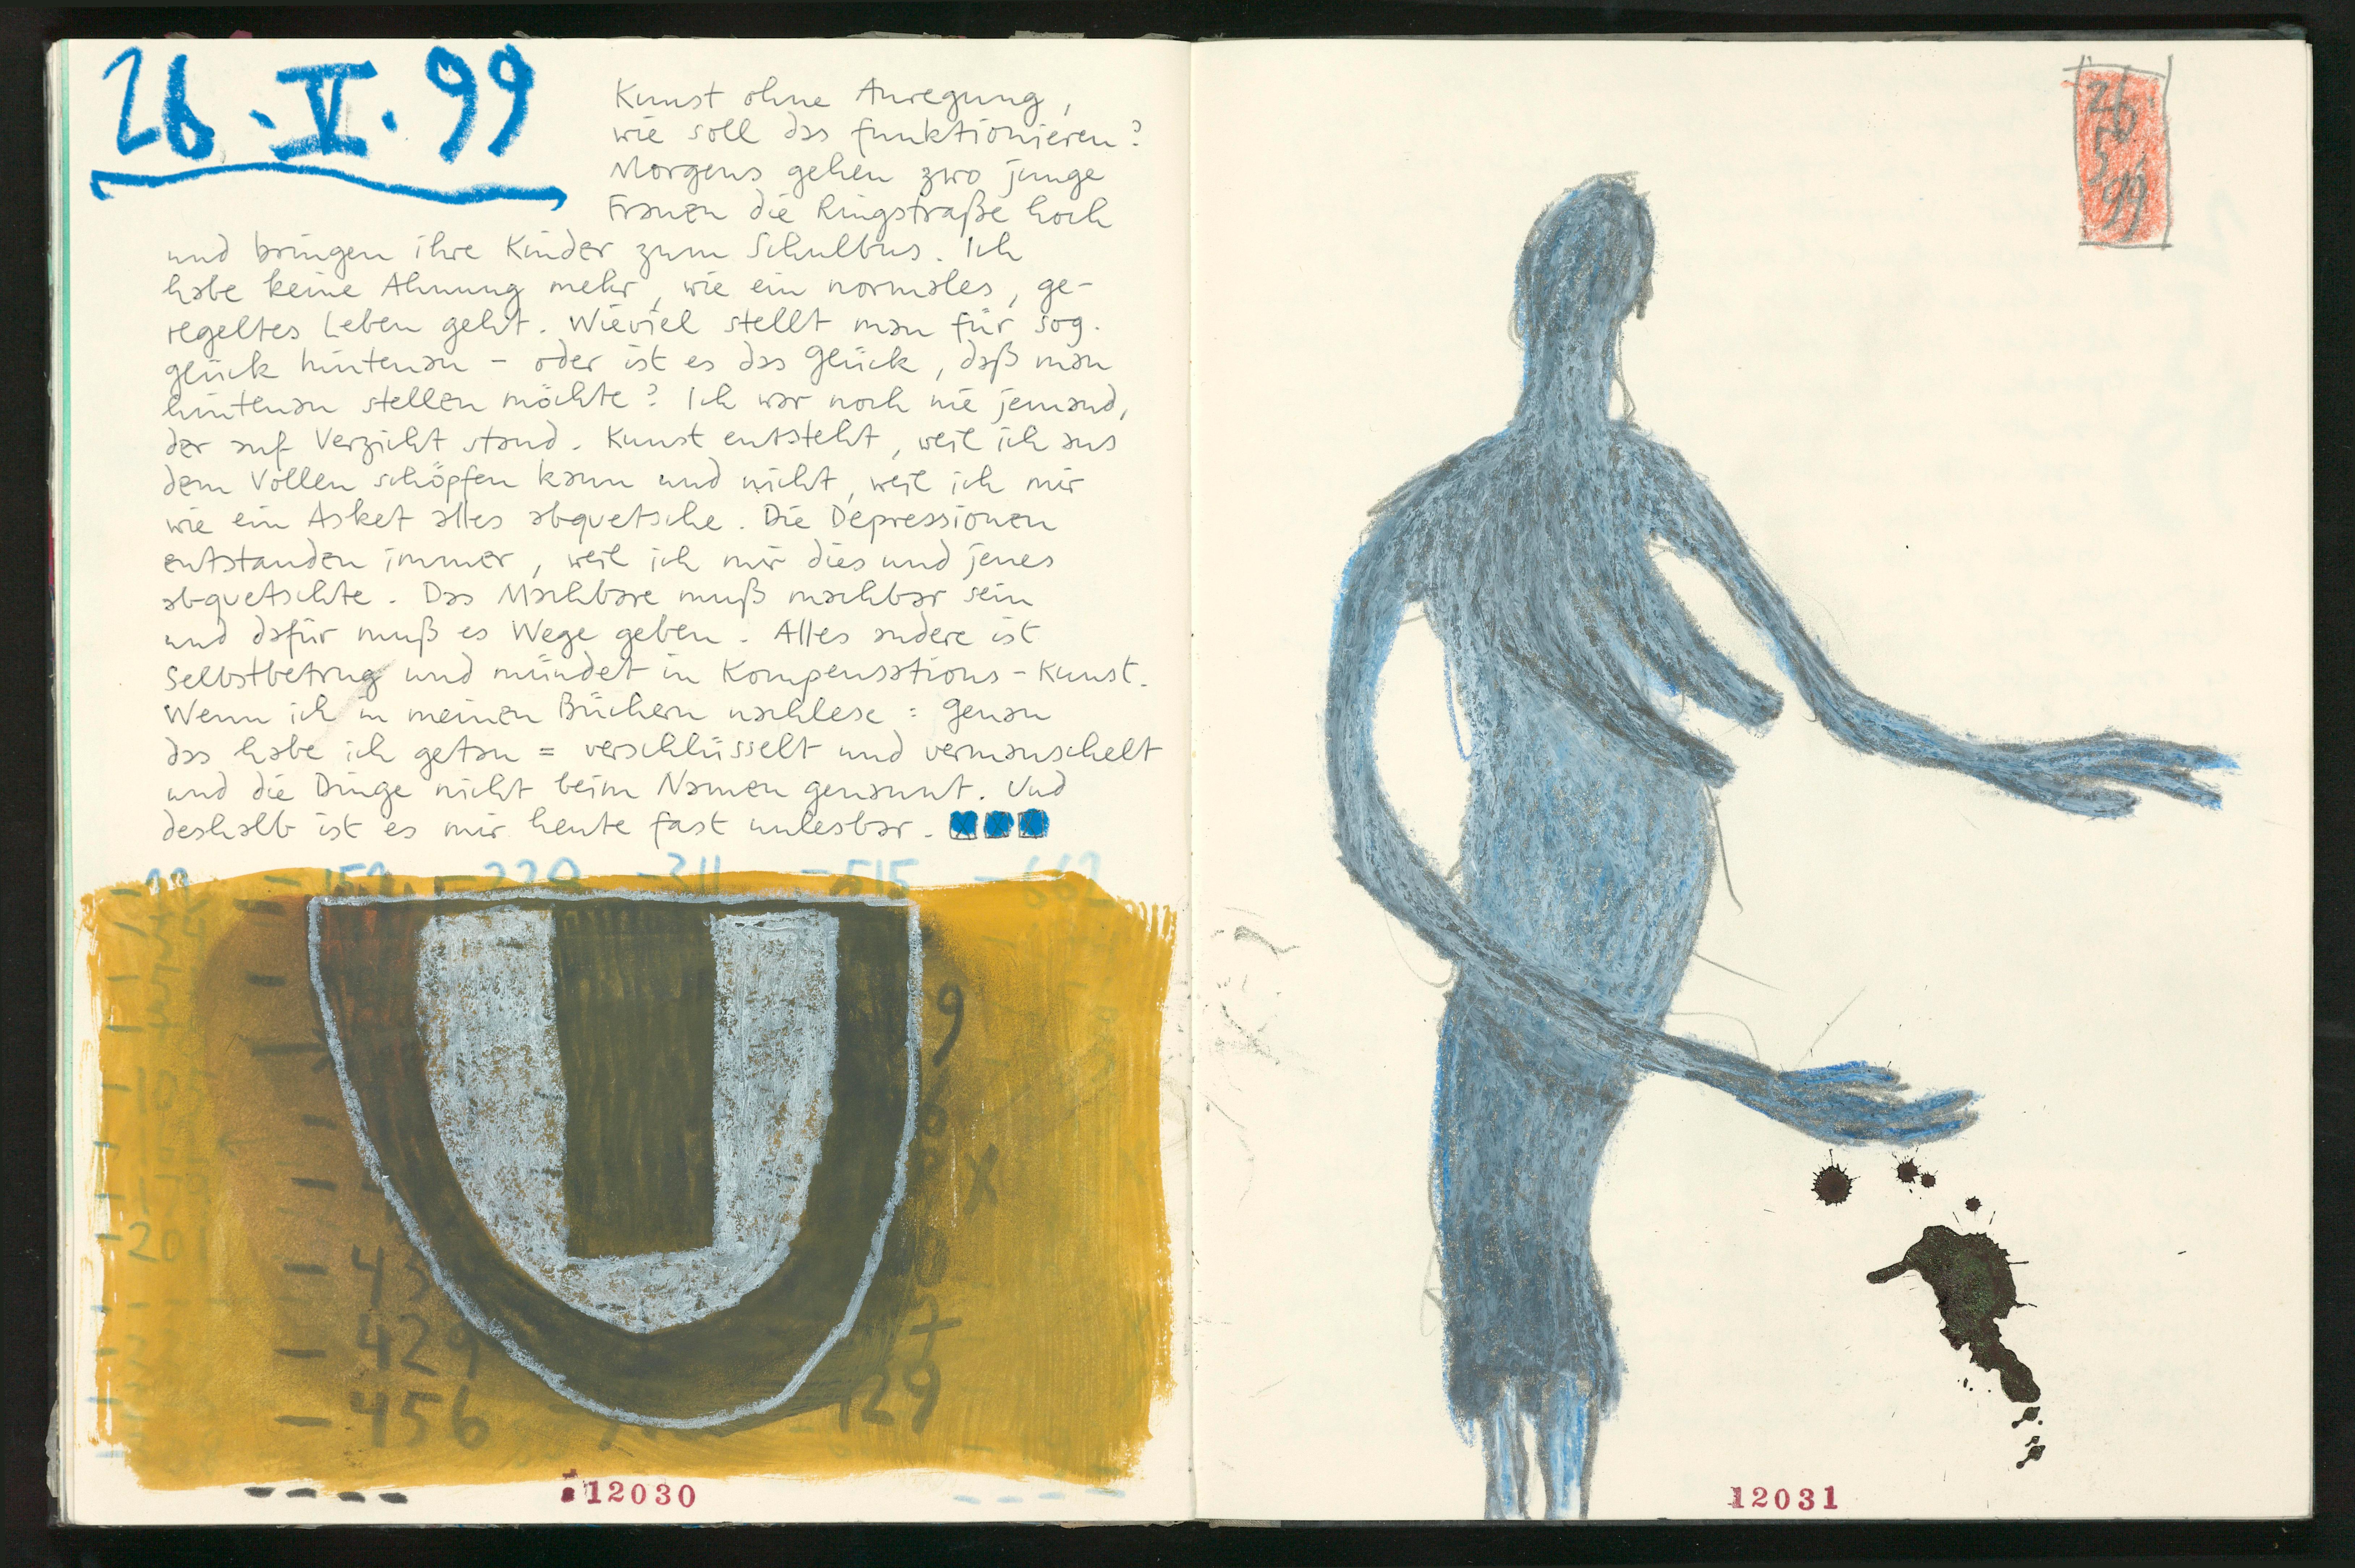 26.V.99
Kunst ohne Anregung,
wie soll das funktionieren?
Morgens gehen zwo junge
Frauen die Ringstraße hoch
und bringen ihre Kinder zum Schulbus. Ich
habe keine Ahnung mehr, wie ein normales, ge-
regeltes Leben geht. Wieviel stellt man für sog.
Glück hintenan - oder ist es das Glück, daß man
hintenan stellen möchte? Ich war noch nie jemand,
der auf Verzicht stand. Kunst entsteht, weil ich aus
dem Vollen schöpfen kann und nicht, weil ich mir
wie ein Asket alles abquetsche. Die Depressionen
entstanden immer, weil ich mir dies und jenes
abquetschte. Das Machbare muß machbar sein
und dafür muß es Wege geben. Alles andere ist
Selbstbetrug und mündet in Kompensations-Kunst.
Wenn ich in meinen Büchern nachlese: genau
das habe ich getan = verschlüsselt und vermanschelt
und die Dinge nicht beim Namen genannt. Und
deshalb ist es mir heute fast unlesbar.
-311 -515 -662
9
-201
-429
-456 129
12030
26
5
99
12031